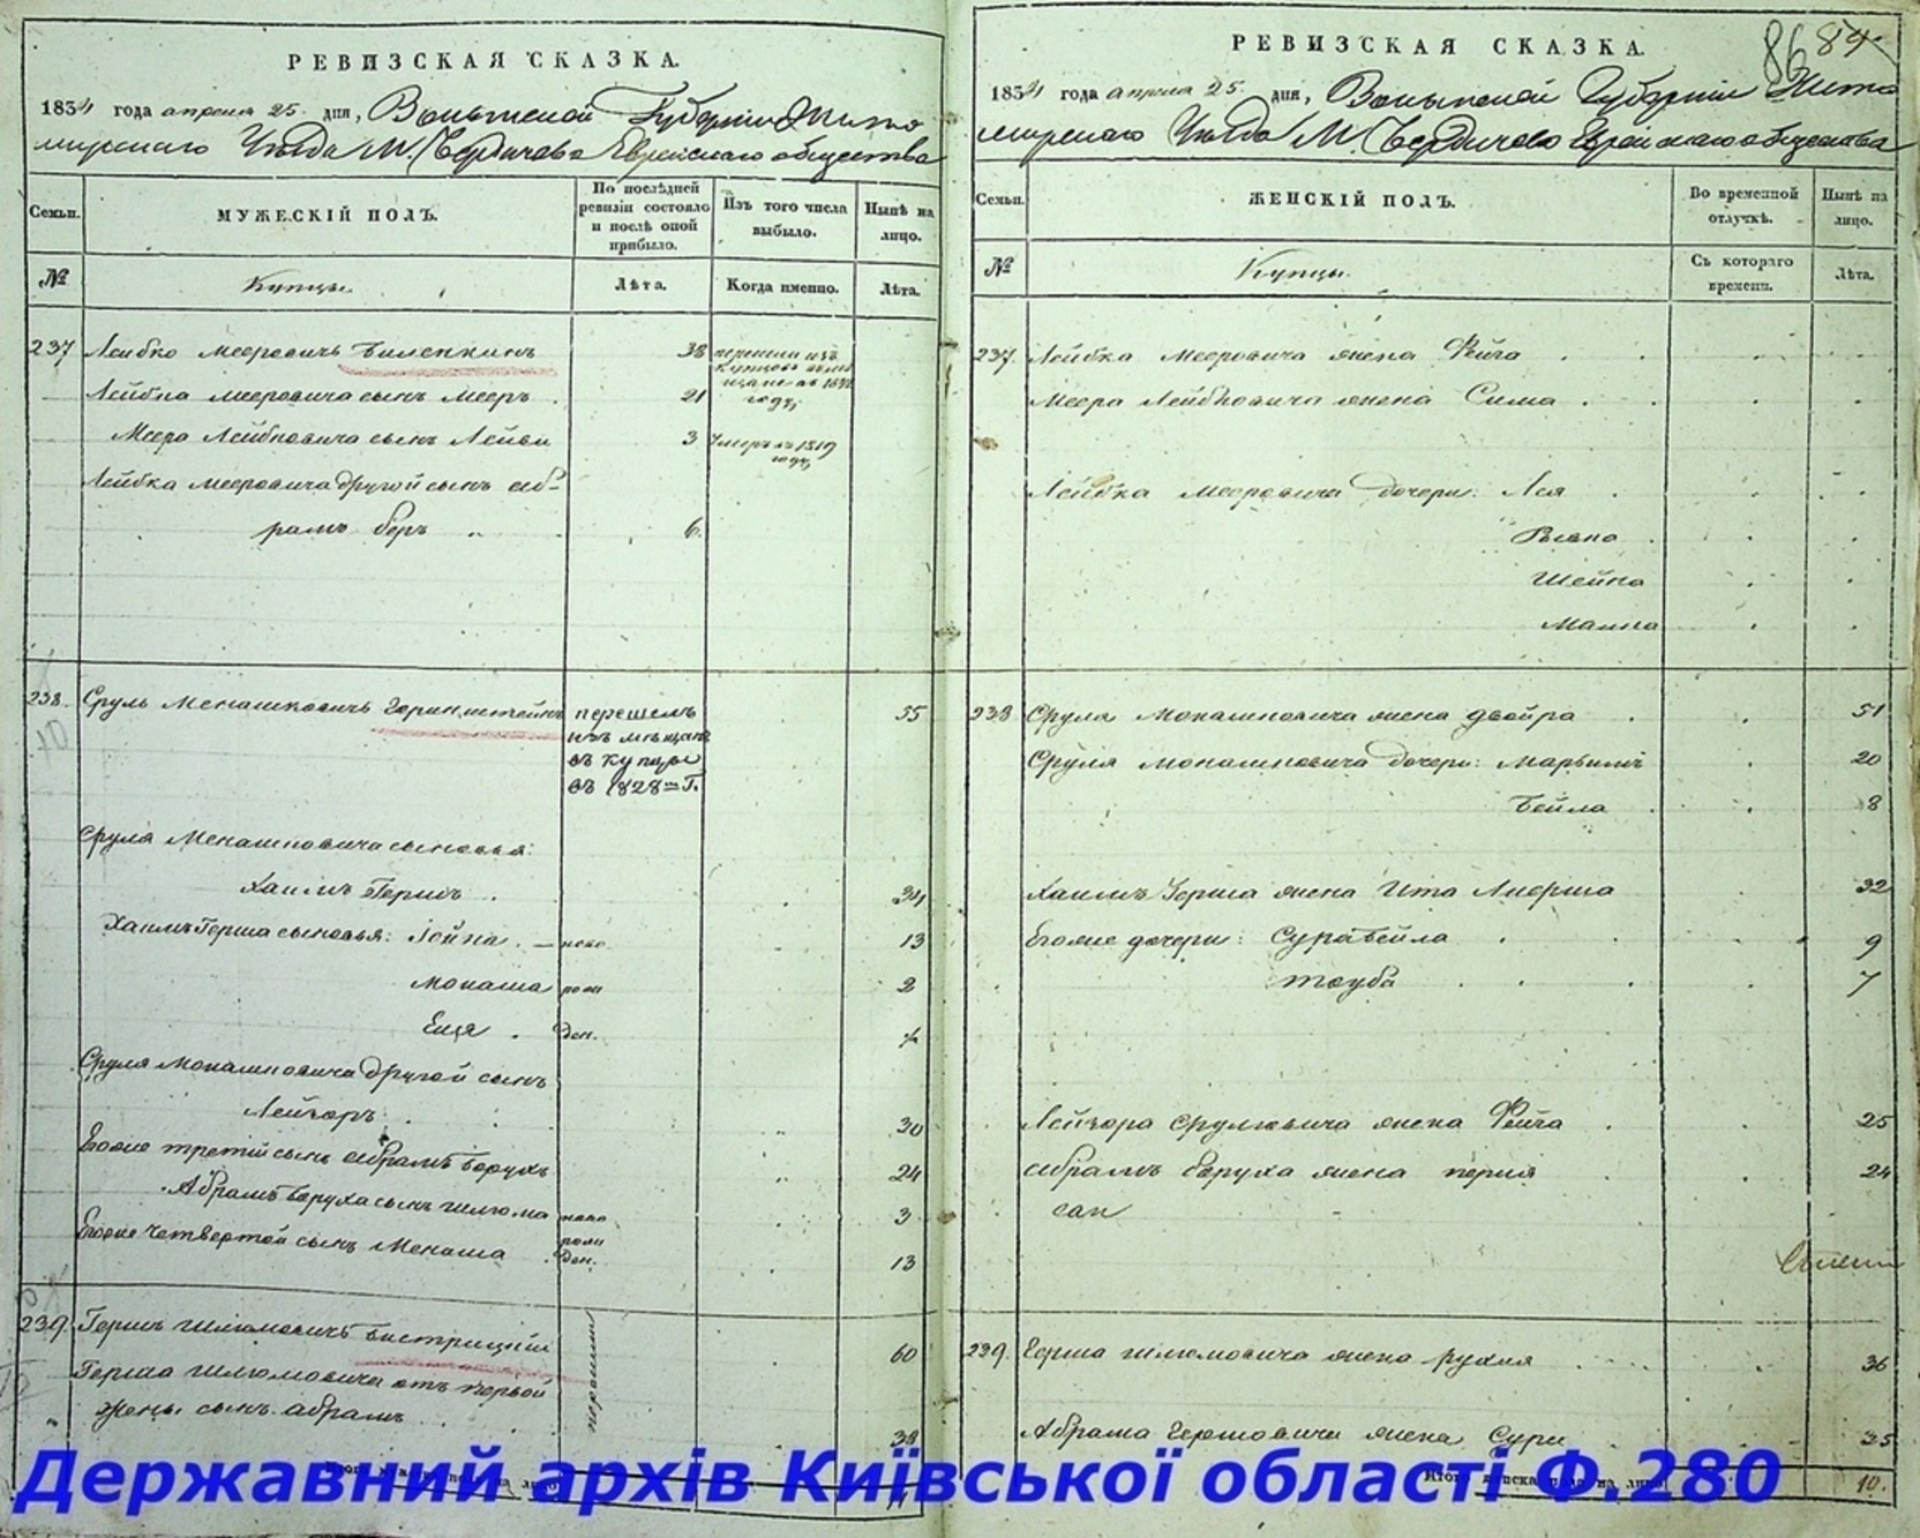 РЕВИЗСКАЯ СКАЗКА.
1834 года апреля 25 дня, Волынской Губернии Жито
мирскаго Уезда М. Бердичева Еврейскаго общества
Семьи.
МУЖЕСКІЙ ПОЛЪ.
По послѣдней ревизіи состояло и послѣ оной прибыло.
Изъ того числа выбыло.
Нынѣ на лицо.
№
Купцы.
Лѣта.
Когда именно.
Лѣта.
237 Лейбко Мееровичъ Биленкинъ 38 перешли изъ купцовъ въ мещане в году
Лейбка Мееровича сынъ Мееръ 21
Меера Лейбковича сынъ Лейви 3 умеръ в 1819 году
Лейбка Мееровича другой сынъ Аб-
рамъ Беръ 6.
238. Сруль Менашковичъ 55
перешелъ
изъ мещанъ
въ купцы
въ 1828 Г.
Сруля Менашковича сыновья:
Хаимъ Гершъ 34
Хаимъ Герша сыновья: ново 13
Монаша рож 2
ден.
Сруля Монашковича другой сынъ
Лейзоръ 30
Егоже третій сынъ Абрамъ Борухъ 24
Абрамъ Боруха сынъ Шлюма ново 3
рож
Егоже четвертой сынъ Менаша ден. 13
239. Гершъ Шлюмовичъ Бистрицкій 60
Герша Шлюмовича отъ первой
жены сынъ Абрамъ 38
РЕВИЗСКАЯ СКАЗКА.
86 87
1834 года апреля 25 дня, Волынской Губерніи Жито
мирскаго Уезда М. Бердичева Еврейскаго общества
Семьи.
ЖЕНСКІЙ ПОЛЪ.
Во временной отлучкѣ.
Нынѣ на лицо.
№
Купцы.
Съ котораго времени.
Лѣта.
237. Лейбка Мееровича жена Фейга
Меера Лейбковича жена Сима
Лейбка Мееровича дочери: Лея
Ривка
Шейна
Малка
238 Сруля Монашковича жена Двойра 51
Сруля Монашковича дочери: Марьямъ 20
Бейла 8
Хаимъ Герша жена Ита 32
Егоже дочери: Сура Бейла 9
Тауба 7
Лейзора Срулевича жена Фейга 25
Абрамъ Боруха жена Перля 24
239. Герша Шлюмовича жена Рухля 36
Абрама Гершовича жена Сури 35
Итого женска пола на лицо 10.
Державний архів Київської області Ф.280